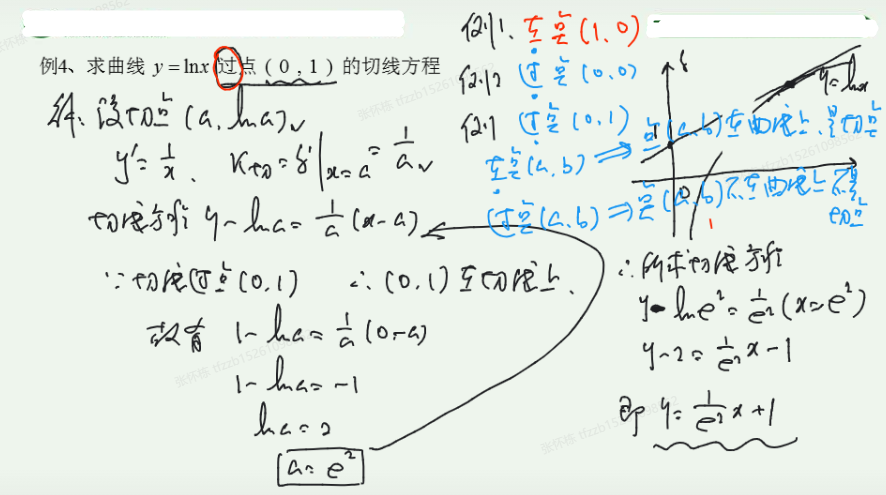 例4、求曲线 y = lnx 过点（0，1）的切线方程
解：设切点 (a, lna)
y' = 1/x. K切 = y'|x=a = 1/a
切线方程 y - lna = 1/a (x-a)
∵ 切线过点 (0,1) ∴ (0,1) 在切线上.
故有 1 - lna = 1/a (0-a)
1 - lna = -1
lna = 2
a = e²
例1、在点 (1, 0)
例2 过点 (0, 0)
例 过点 (0, 1)
在点 (a, b) ⇒ 点 (a, b) 在曲线上、是切点
过点 (a, b) ⇒ 点 (a, b) 不在曲线上 不是切点
y
y = lnx
1
0
1
∴ 所求切线方程
y - lne² = 1/e² (x - e²)
y - 2 = 1/e² x - 1
即 y = 1/e² x + 1